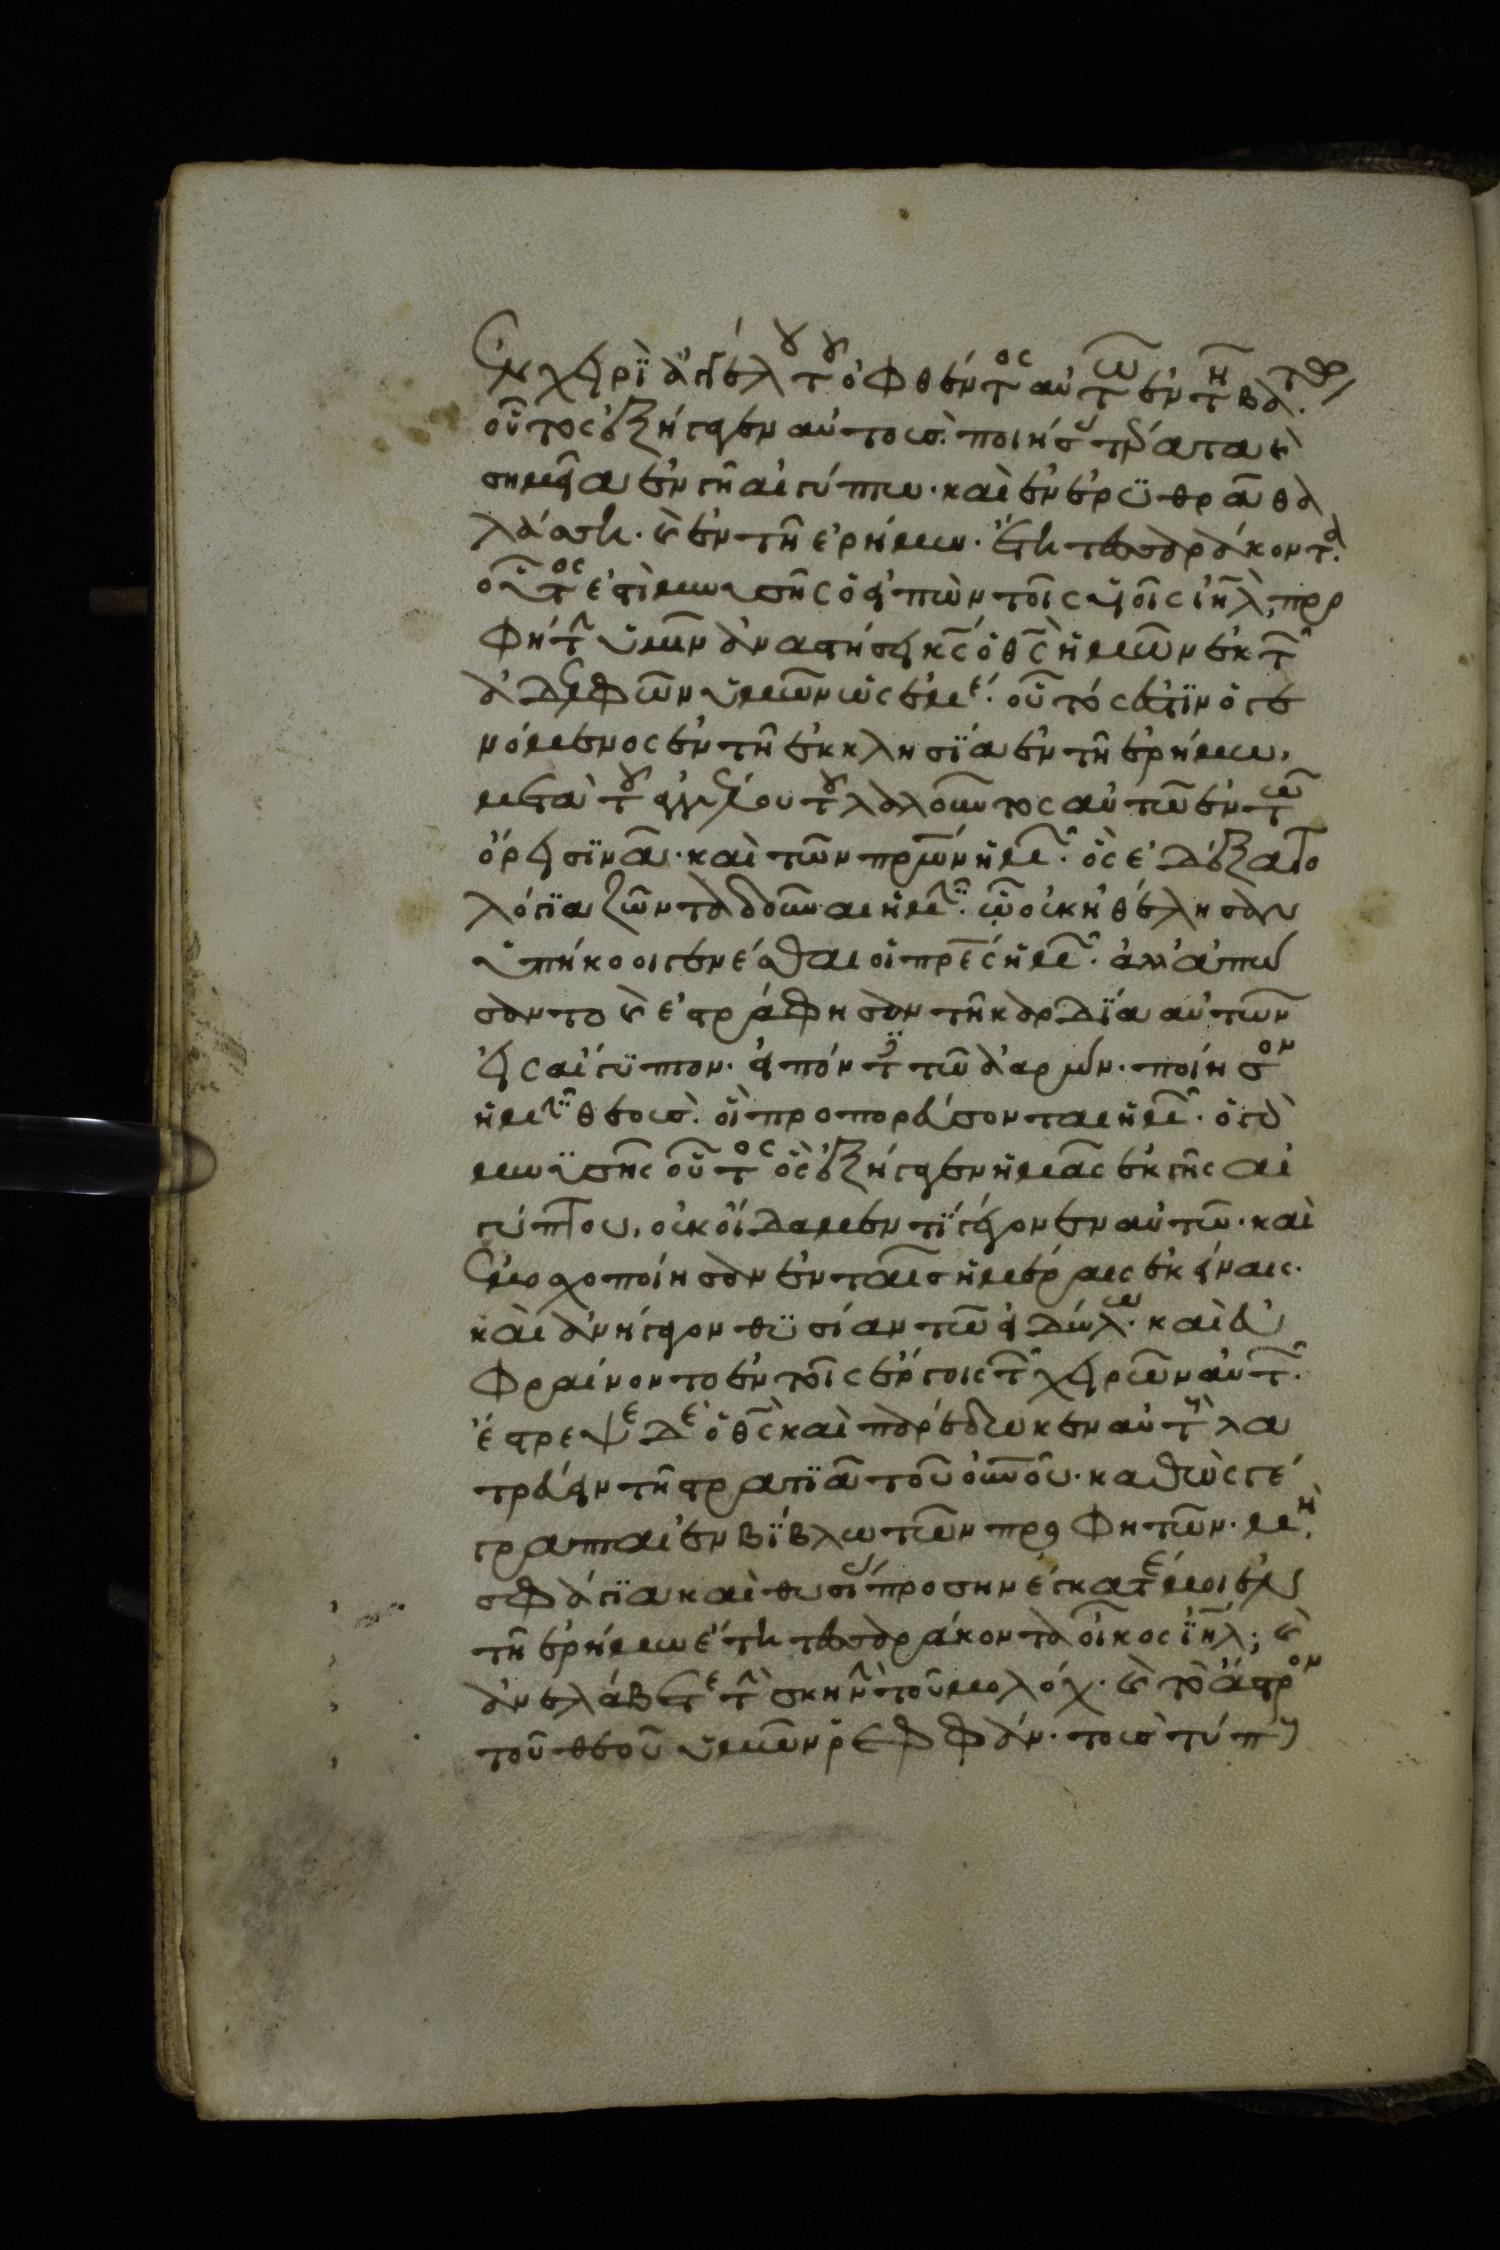 Ἐν χειρὶ ἀγγέλου τοῦ ὀφθέντος αὐτῶ ἐν τῆ βάτω
οὗτος ἐξήγαγεν αὐτοὺς· ποιήσας τέρατα καὶ
σημεῖα ἐν γῆ αἰγύπτω· καὶ ἐν ἐρϋθρᾶ θα
λάσση· καὶ ἐν τῆ ἐρήμω· ἔτη τεσσαράκοντα·
οὗτος ἐστὶ μωυσῆς ὁ εἰπὼν τοῖς υἱοῖς ἰηλ, προ
φήτην ὑμῖν ἀναστήσει κς ὁ θς ἡμῶν ἐκ τῶν
ἀδελφῶν ὑμῶν ὡς ἐμέ· οὗτός ἐστϊν ὁ γε
νόμενος ἐν τῆ ἐκκλησϊα ἐν τῆ ἐρήμω,
μετὰ τοῦ ἀγγέλου τοῦ λαλοῦντος αὐτῶ ἐν τῶ
ὄρει σϊνᾶ· καὶ τῶν πρῶν ἡμῶν· ὃς ἐδέξατο
λόγϊα ζῶντα δοῦναι ἡμῖν· ὧ οὐκ ἠθέλησαν
ὑπήκοοι γενέσθαι οἱ πρες ἡμῶν· ἀλλ' ἀπώ
σαντο καὶ ἐστράφησαν τῆ καρδϊα αὐτῶν
εἰς αἴγϋπτον· εἰπόντες τῶ ἀαρών· ποίησον
ἡμῖν θεοὺς· οἳ προπορεύσονται ἡμῶν· ὁ γὰρ
μωϋσῆς οὗτος ὃς ἐξήγαγεν ἡμᾶς ἐκ γῆς αἰ
γύπτου, οὐκ οἴδαμεν τϊ γέγονεν αὐτῶ· καὶ
ἐμοσχοποίησαν ἐν ταῖς ἡμέραις ἐκείναις·
καὶ ἀνήγαγον θϋσίαν τῶ εἰδώλω· καὶ εὐ
φραίνοντο ἐν τοῖς ἔργοις τῶν χειρῶν αὐτῶν·
ἔστρεψε δὲ ὁ θς καὶ παρέδωκεν αὐτοὺς λα
τρεύειν τῆ στρατϊᾶ τοῦ οὐνοῦ· καθὼς γέ
γραπται ἐν βϊβλω τῶν προφητῶν· μὴ
σφάγϊα καὶ θυσίας προσηνέγκατέ μοι ἐν
τῆ ἐρήμω ἔτη τεσσαράκοντα οἶκος ἰηλ; καὶ
ἀνελάβετε τὴν σκηνὴν τοῦ μολόχ· καὶ τὸ ἄστρον
τοῦ θεοῦ ὑμῶν ῥεφφάν· τοὺς τύπους